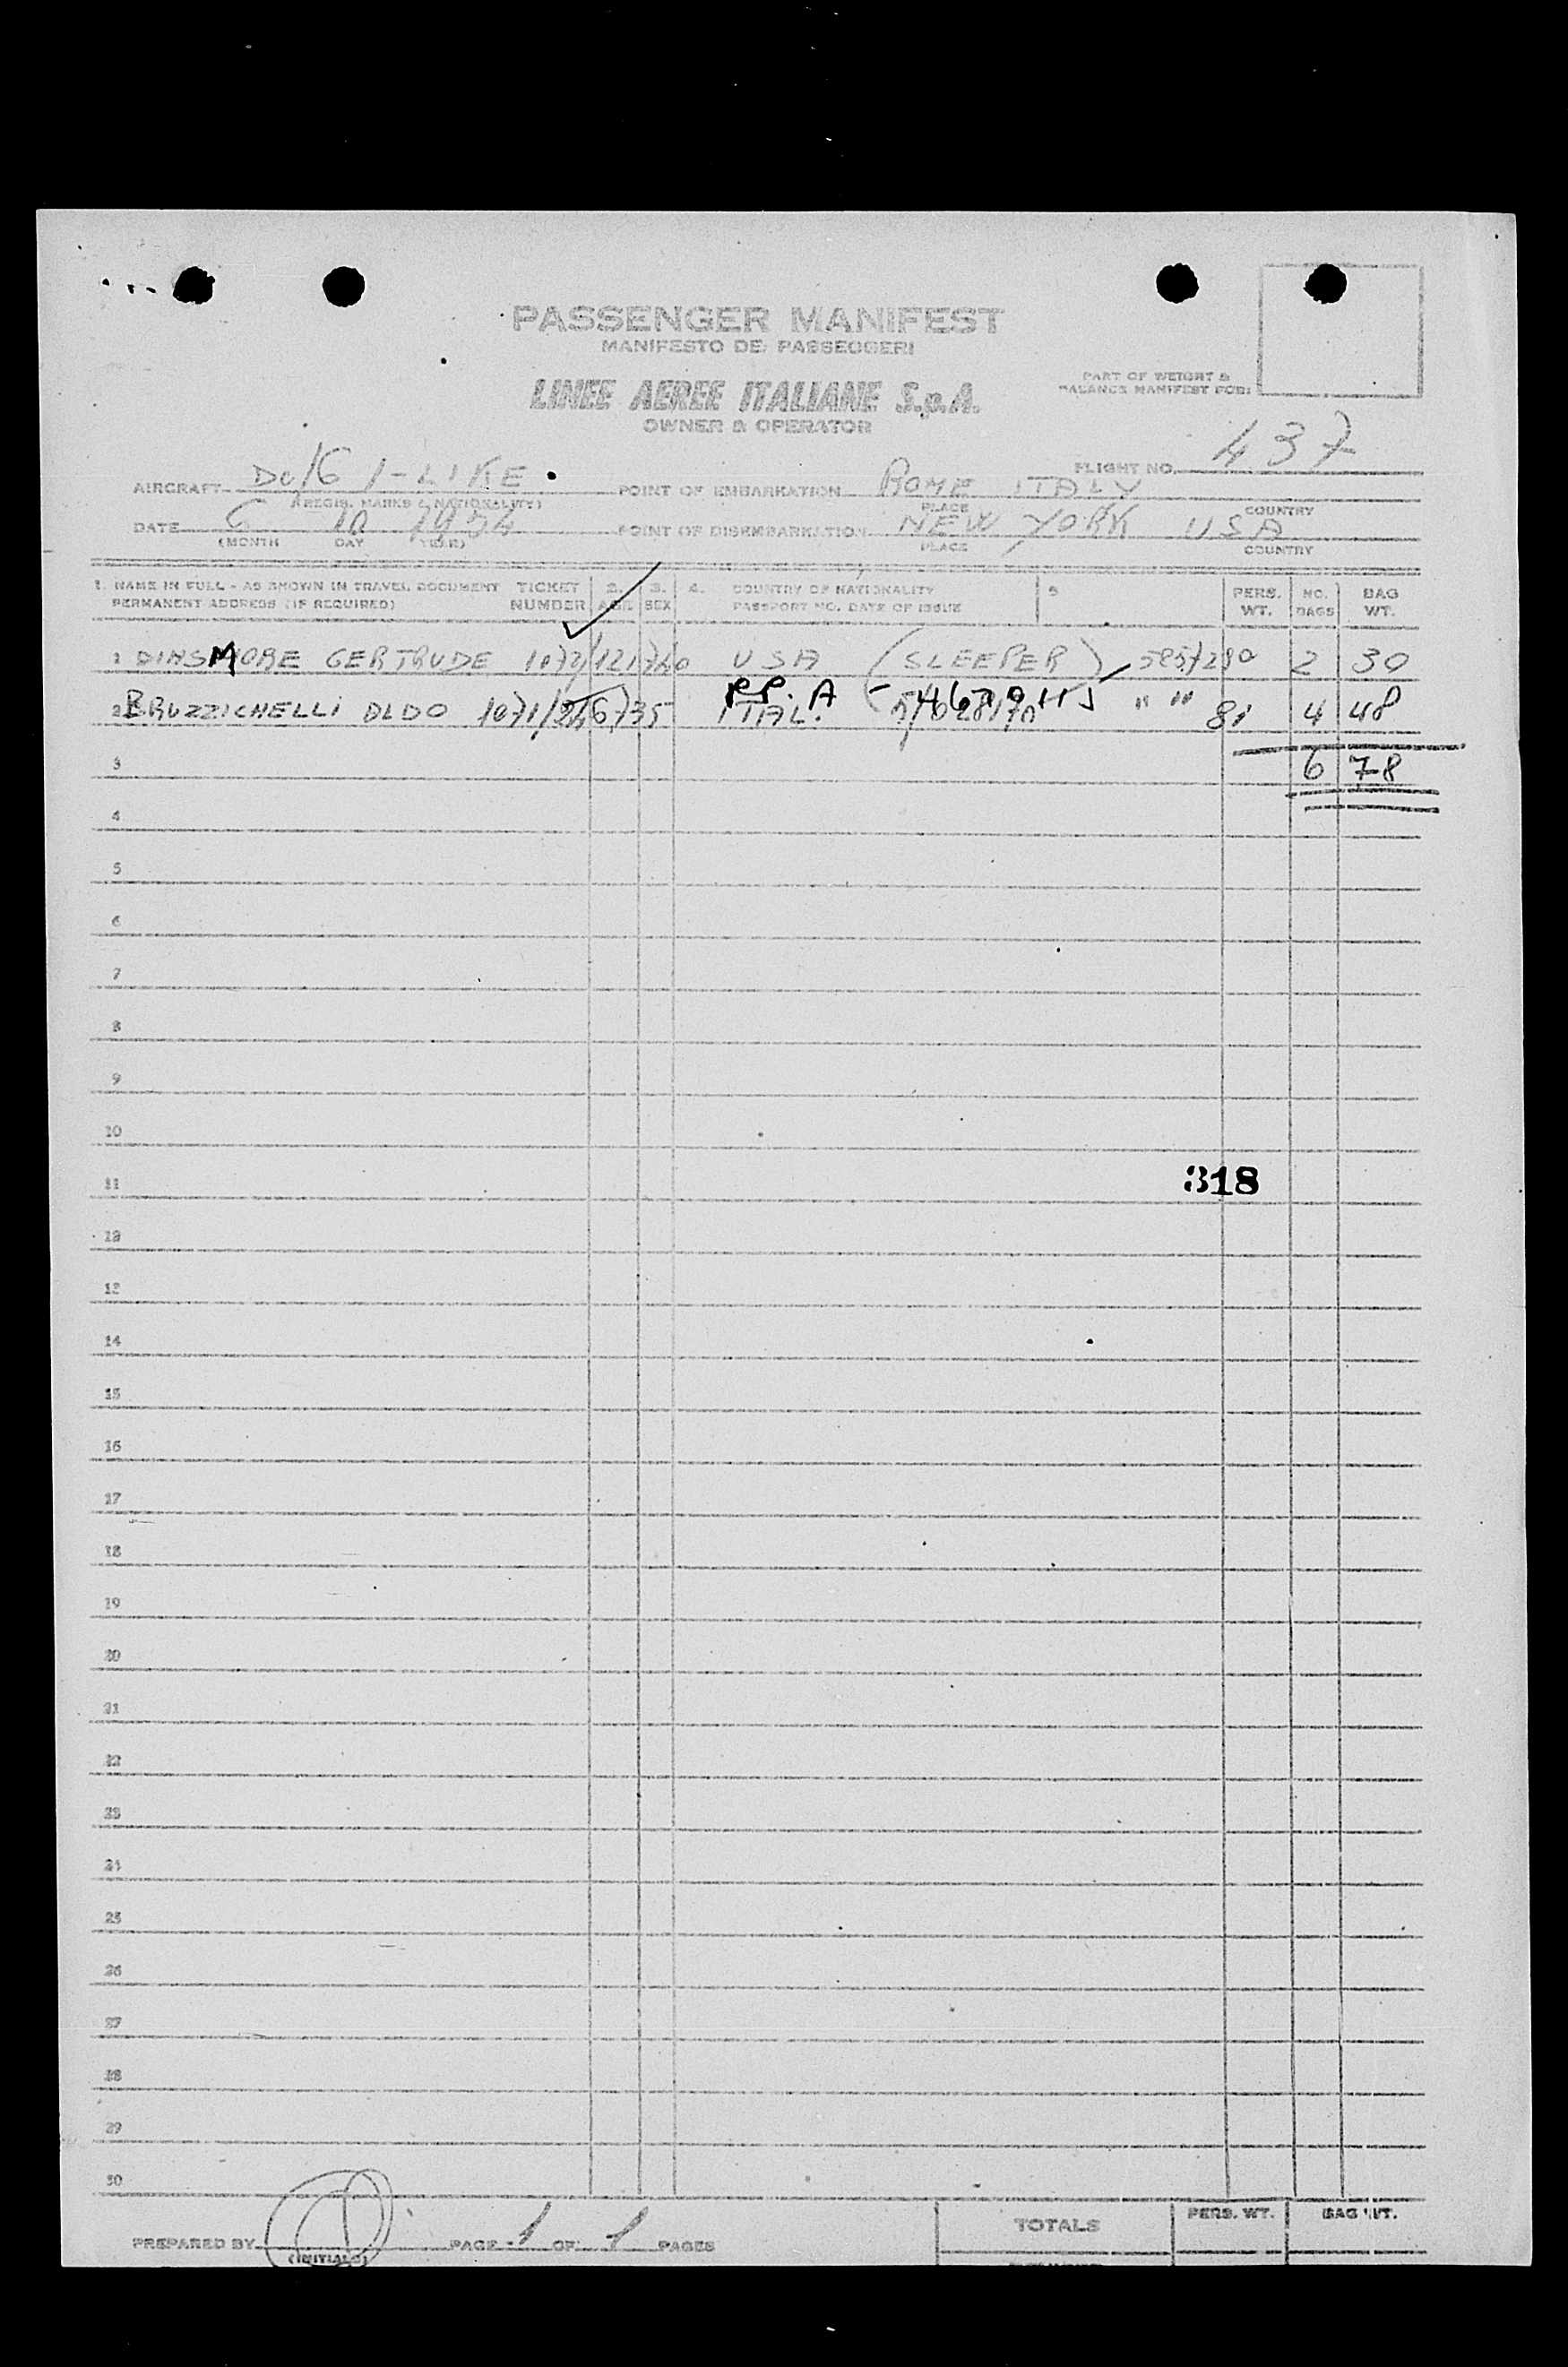 PASSENGER MANIFEST
MANIFESTO DEI PASSEGGERI
LINEE AEREE ITALIANE S.p.A.
OWNER & OPERATOR
PART OF WEIGHT &
BALANCE MANIFEST FOR:
AIRCRAFT DC/6 I-LIKE POINT OF EMBARKATION ROME ITALY FLIGHT NO. 437
(REGIS. MARKS & NATIONALITY) PLACE COUNTRY
DATE 6 10 1954 POINT OF DISEMBARKATION NEW YORK USA
(MONTH DAY YEAR) PLACE COUNTRY
1. NAME IN FULL - AS SHOWN IN TRAVEL DOCUMENT TICKET 2. 3. 4. COUNTRY OF NATIONALITY 5 PERS. NO. BAG
PERMANENT ADDRESS (IF REQUIRED) NUMBER AGE SEX PASSPORT NO. DATE OF ISSUE WT. BAGS WT.
1 DINSMORE GERTRUDE USA (SLEEPER) 2 30
P.P. A
2 BRUZZICHELLI ALDO ITAL. " " 4 48
3 6 78
4
5
6
7
8
9
10
318
11
12
13
14
15
16
17
18
19
20
21
22
23
24
25
26
27
28
29
30
TOTALS PERS. WT. BAG WT.
PREPARED BY PAGE 1 OF 1 PAGES
(INITIALS)